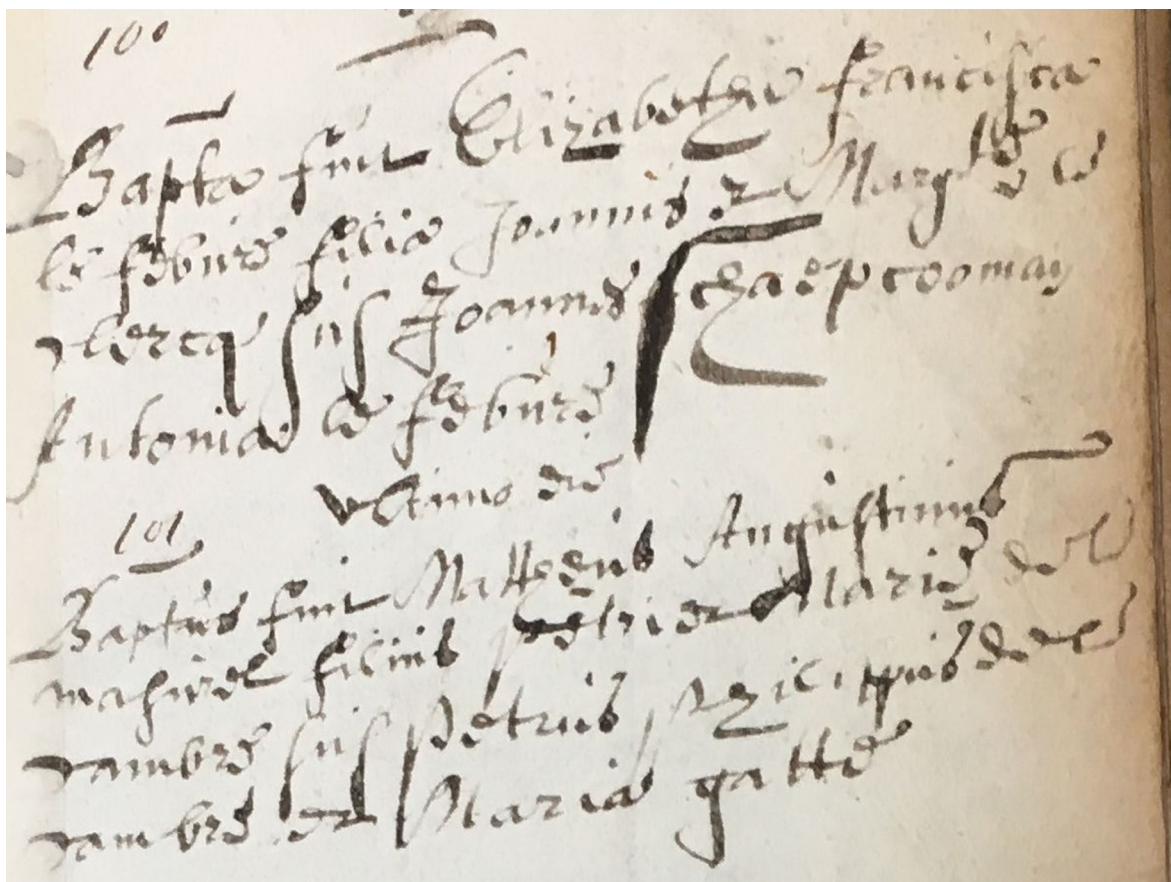 100
Bapta fuit Elizabetha francisca
le febure filia Joannis et Margte le
clercq sus Joannes Schaepcooman
Antonia le febure
ultimo die
101
Baptus fuit Mattheus Augustinus
mahieu filius petri et Marie del
cambre sus petrus philippus del
cambre et Maria gatte